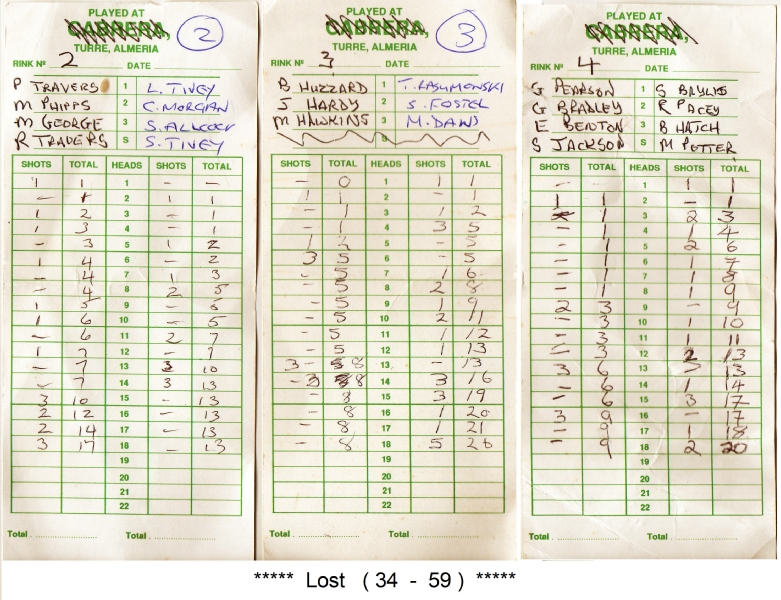 PLAYED AT
CABRERA,
TURRE, ALMERIA
2
RINK Nº 2 DATE
P TRAVERS 1 L. TIVEY
M PHIPPS 2 C. MORGAN
M GEORGE 3 S. ALLCOCK
R TRAVERS S S. TIVEY
SHOTS TOTAL HEADS SHOTS TOTAL
1 1 1 - -
- 1 2 1 1
1 2 3 - 1
1 3 4 - 1
- 3 5 1 2
1 4 6 - 2
- 4 7 1 3
- 4 8 2 5
1 5 9 - 5
1 6 10 - 5
- 6 11 2 7
1 7 12 - 7
- 7 13 3 10
- 7 14 3 13
3 10 15 - 13
2 12 16 - 13
2 14 17 - 13
3 17 18 - 13
19
20
21
22
Total Total
PLAYED AT
CABRERA,
TURRE, ALMERIA
3
RINK Nº 3 DATE
B HUZZARD 1
J HARDY 2 S. FOSTER
M HAWKINS 3 M. DAWS
S
SHOTS TOTAL HEADS SHOTS TOTAL
- 0 1 1 1
1 1 2 - 1
- 1 3 1 2
- 1 4 3 5
1 2 5 - 5
3 5 6 - 5
- 5 7 1 6
- 5 8 2 8
- 5 9 1 9
- 5 10 2 11
- 5 11 1 12
- 5 12 1 13
3 - 8 13 - 13
- 8 14 3 16
- 8 15 3 19
- 8 16 1 20
- 8 17 1 21
- 8 18 5 26
19
20
21
22
Total Total
PLAYED AT
CABRERA,
TURRE, ALMERIA
RINK Nº 4 DATE
G PEARSON 1 S BAYLIS
G BRADLEY 2 R PACEY
E BENTON 3 B HATCH
S JACKSON S M POTTER
SHOTS TOTAL HEADS SHOTS TOTAL
- - 1 1 1
1 1 2 - 1
- 1 3 2 3
- 1 4 1 4
- 1 5 2 6
- 1 6 1 7
- 1 7 1 8
- 1 8 1 9
2 3 9 - 9
- 3 10 1 10
- 3 11 1 11
- 3 12 2 13
3 6 13 - 13
- 6 14 1 14
- 6 15 3 17
3 9 16 - 17
- 9 17 1 18
- 9 18 2 20
19
20
21
22
Total Total
***** Lost ( 34 - 59 ) *****